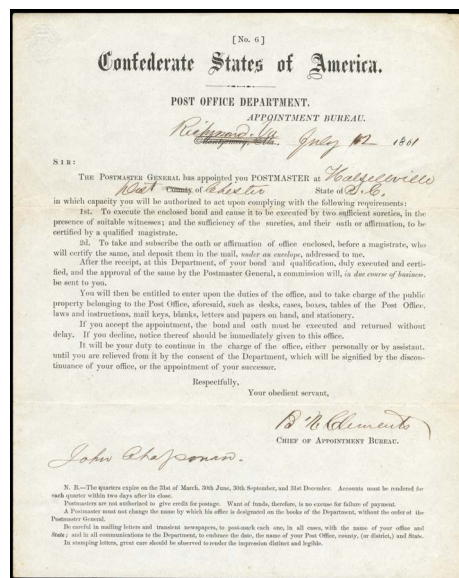 [No. 6]
Confederate States of America.
POST OFFICE DEPARTMENT.
APPOINTMENT BUREAU.
Richmond, Va
Montgomery, Ala. July 12 1861
SIR:
THE POSTMASTER GENERAL has appointed you POSTMASTER at Halsellville
Dist County of Chester State of S. C.
in which capacity you will be authorized to act upon complying with the following requirements:
1st. To execute the enclosed bond and cause it to be executed by two sufficient sureties, in the
presence of suitable witnesses; and the sufficiency of the sureties, and their oath or affirmation, to be
certified by a qualified magistrate.
2d. To take and subscribe the oath or affirmation of office enclosed, before a magistrate, who
will certify the same, and deposit them in the mail, under an envelope, addressed to me.
After the receipt, at this Department, of your bond and qualification, duly executed and certi-
fied, and the approval of the same by the Postmaster General, a commission will, in due course of business,
be sent to you.
You will then be entitled to enter upon the duties of the office, and to take charge of the public
property belonging to the Post Office, aforesaid, such as desks, cases, boxes, tables of the Post Office,
laws and instructions, mail keys, blanks, letters and papers on hand, and stationery.
If you accept the appointment, the bond and oath must be executed and returned without
delay. If you decline, notice thereof should be immediately given to this office.
It will be your duty to continue in the charge of the office, either personally or by assistant,
until you are relieved from it by the consent of the Department, which will be signified by the discon-
tinuance of your office, or the appointment of your successor.
Respectfully,
Your obedient servant,
B N Clements
CHIEF OF APPOINTMENT BUREAU.
John Chapman.
N. B.—The quarters expire on the 31st of March, 30th June, 30th September, and 31st December. Accounts must be rendered for
each quarter within two days after its close.
Postmasters are not authorized to give credit for postage. Want of funds, therefore, is no excuse for failure of payment.
A Postmaster must not change the name by which his office is designated on the books of the Department, without the order of the
Postmaster General.
Be careful in mailing letters and transient newspapers, to post-mark each one, in all cases, with the name of your office and
State; and in all communications to the Department, to embrace the date, the name of your Post Office, county, (or district,) and State.
In stamping letters, great care should be observed to render the impression distinct and legible.